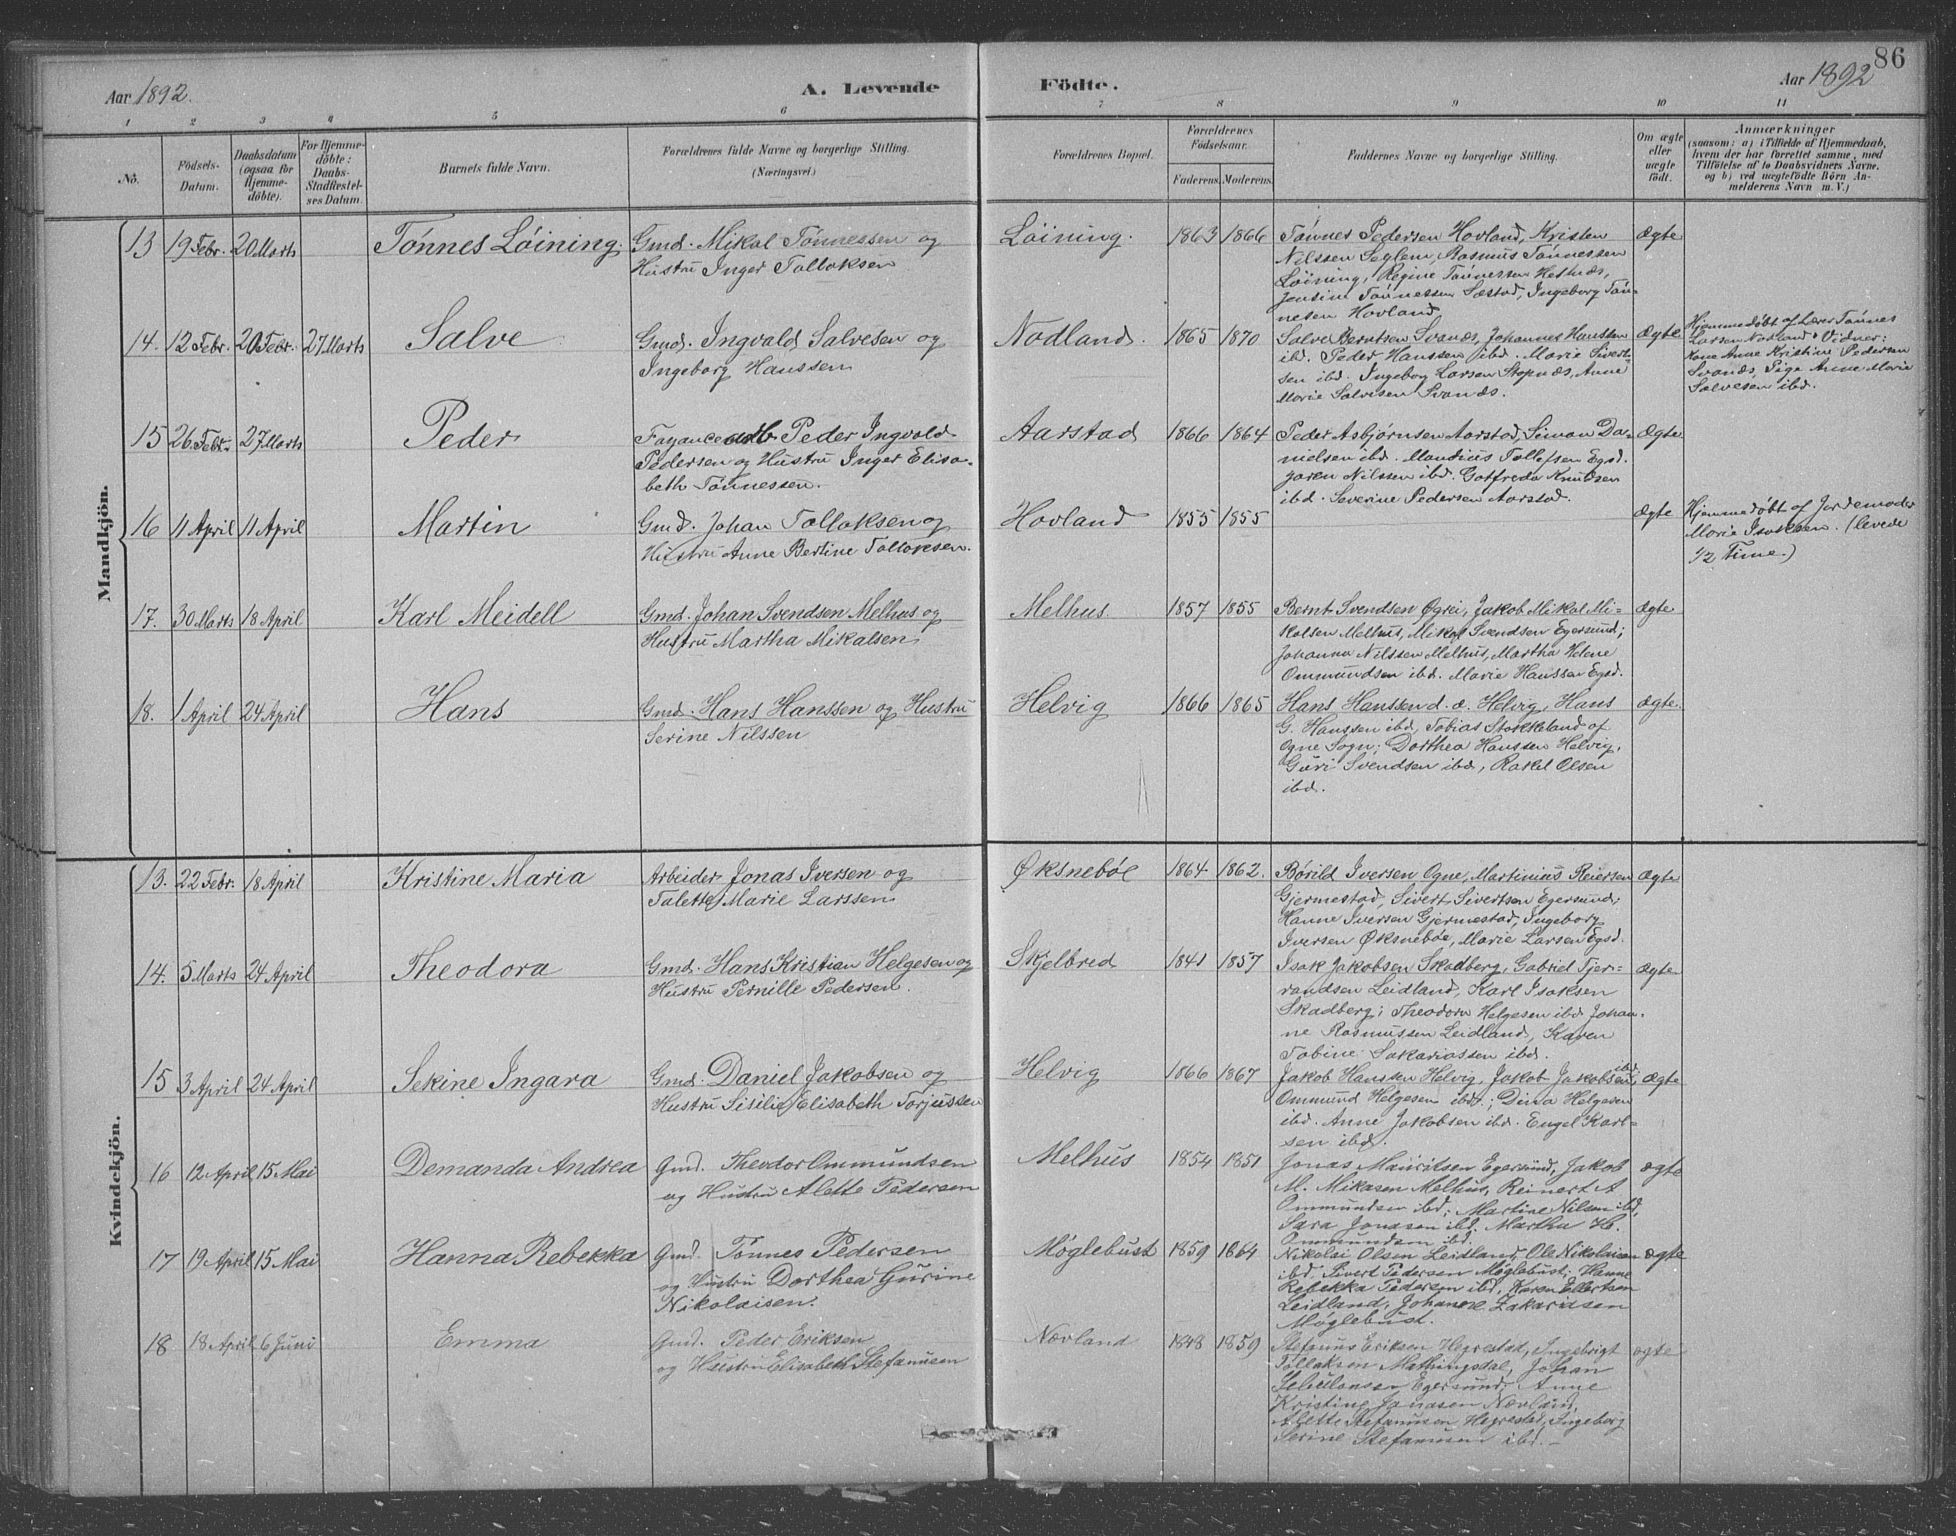 86
Aar 1892. A. Levende Födte. Aar 1892
1 2 3 4 5 6 7 8 9 10 11
No. Födsels-Datum. Daabsdatum (ogsaa for Hjemmedöbte). For Hjemmedöbte: Daabs-Stadfæstelses Datum. Barnets fulde Navn. Forældrenes fulde Navne og borgerlige Stilling. (Næringsvei) Forældrenes Bopæl. Forældrenes Födselsaar. Faderens. Moderens. Faddernes Navne og borgerlige Stilling. Om ægte eller uægte födt. Anmærkninger (saasom: a) i Tilfælde af Hjemmedaab, hvem der har forrettet samme, med Tilföielse af to Daabsvidners Navne, og b) ved uægtefödte Börn Anmelderens Navn m. V.)
Mandkjön.
13 19 Febr. 20 Marts Tønnes Løining. Gmd. Mikal Tønnessen og Løining. 1863 1866 Tønnes Pedersen Hovland, Kristen ægte
Hustru Inger Tollaksen Nilssen Seglem, Rasmus Tønnessen
Løining, Regine Tønnessen Hetnæs,
Jensine Tønnessen Sæstad, Ingeborg Tøn-
nesen Hovland
14. 12 Febr. 20 Febr. 27 Marts Salve Gmd. Ingvald Salvesen og Nodland. 1865 1870 Salve Berntsen Svanæs, Johannes Hanssen ægte Hjemmedøbt af Lærer Tønnes
Ingeborg Hanssen ibd. Peder Hanssen ibd. Marie Sivert- Larsen Nodland. Vidner:
sen ibd. Ingeborg Larsen Stapnæs, Anne Kone Anne Kristine Pedersen
Marie Salvesen Svanæs. Svanæs, Pige Anne Marie
Salvesen ibd.
15 26 Febr. 27 Marts Peder Fayancearb. Peder Ingvald Aarstad 1866 1864 Peder Asbjørnsen Aarstad, Simon Da- ægte
Pedersen og Hustru Inger Elisa- nielsen ibd. Mandius Tollefsen Egsd.
beth Tønnessen. Jøren Nilssen ibd. Gotfreda Knudsen
ibd. Severine Pedersen Aarstad.
16 11 April 11 April Martin Gmd. Johan Tollaksen og Hovland 1855 1855 ægte Hjemmedøbt af Jordemoder
Hustru Anne Bertine Tollaksen. Marie Isaksen. (levede
1/2 Time.)
17. 30 Marts 18 April Karl Meidell Gmd. Johan Svendsen Melhus og Melhus. 1857 1855 Bernt Svendsen Øgrei, Jakob Mikal Mi- ægte
Hustru Martha Mikalsen kalsen Melhus, Mikal Svendsen Egersund;
Johanna Nilssen Melhus, Martha Helene
Ommundsen ibd. Marie Hanssen Egsd.
18. 1 April 24 April Hans Gmd. Hans Hanssen og Hustru Helvig 1866 1865 Hans Hanssen d. æ. Helvig, Hans ægte.
Serine Nilssen G. Hanssen ibd, Tobias Stokkeland af
Ogne Sogn; Dorthea Hanssen Helvig,
Guri Svendsen ibd, Rakel Olsen
ibd.
Kvindekjön.
13. 22 Febr. 18 April Kristine Maria Arbeider Jonas Iversen og Øksnebøe 1864 1862. Børild Iversen Ogne, Martinius Reiersen ægte
Talette Marie Larssen Gjermestad, Sivert Sivertsen Egersund;
Hanne Iversen Gjermestad, Ingeborg
Iversen Øksnebøe, Marie Larsen Egsd.
14. 5 Marts 24 April Theodora Gmd. Hans Kristian Helgesen og Skjelbred 1841 1857 Isak Jakobsen Skadberg, Gabriel Tjer- ægte
Hustru Pernille Pedersen. randsen Leidland, Karl Isaksen
Skadberg; Theodora Helgesen ibd Johan-
ne Rasmussen Leidland, Karen
Tobine Sakariassen ibd.
15 3 April 24 April Sekine Ingara Gmd. Daniel Jakobsen og Helvig 1866 1867 Jakob Hanssen Helvig, Jakob Jakobsen ibd, ægte
Hustru Sisilie Elisabeth Torjussen Ommund Helgesen ibd.; Dina Helgesen
ibd. Anne Jakobsen ibd. Engel Karl-
sen ibd.
16 12 April 15 Mai Demanda Andrea Gmd. Theodor Ommundsen Melhus 1854 1851 Jonas Mauritsen Egersund, Jakob ægte
og Hustru Alette Pedersen M. Mikasen Melhus, Reinert A
Ommundsen ibd; Martine Nilsen ibd,
Sara Jonasen ibd. Martha H.
Ommundsen ibd.
17 19 April 15 Mai Hanna Rebekka Gmd. Tønnes Pedersen Møglebust 1859 1864 Nikolai Olsen Leidland, Ole Nikolaisen ægte
og Hustru Dorthea Gurine ibd, Sivert Pedersen Møglebust; Hanne
Nikolaisen. Rebekka Pedersen ibd, Karen Ellertsen
Leidland, Johanne Zakariasen
Møglebust.
18 18 April 6 Juni Emma Gmd. Peder Eriksen Nævland 1848 1859 Stefanus Eriksen Hegrestad, Ingebrigt ægte
og Hustru Elisabeth Stefanusen Tollaksen Mathingsdal, Johan
Egersund; Anne
Kristine Jonasen Nævland,
Alette Stefanusen Hegrestad, Ingeborg
Serine Stefanusen ibd.